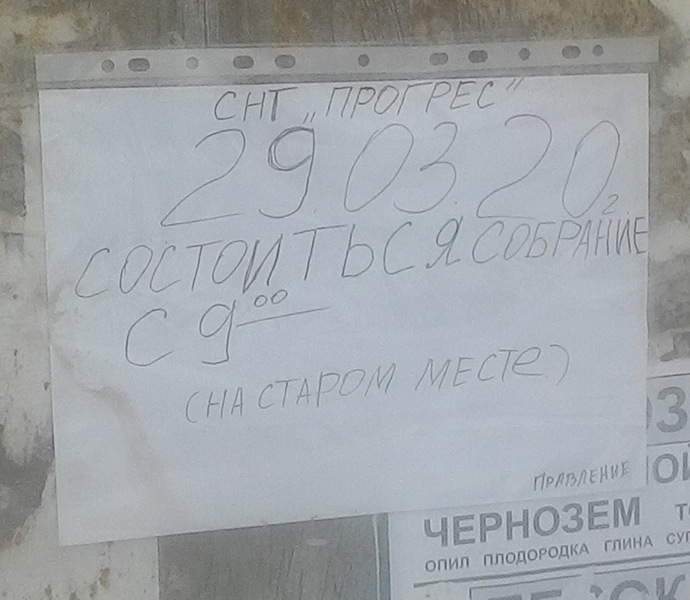 СНТ „ПРОГРЕС"
29.03.20г
СОСТОИТЬСЯ СОБРАНИЕ
С 9⁰⁰
(НА СТАРОМ МЕСТЕ)
ПРАВЛЕНИЕ
ЧЕРНОЗЕМ
ОПИЛ ПЛОДОРОДКА ГЛИНА